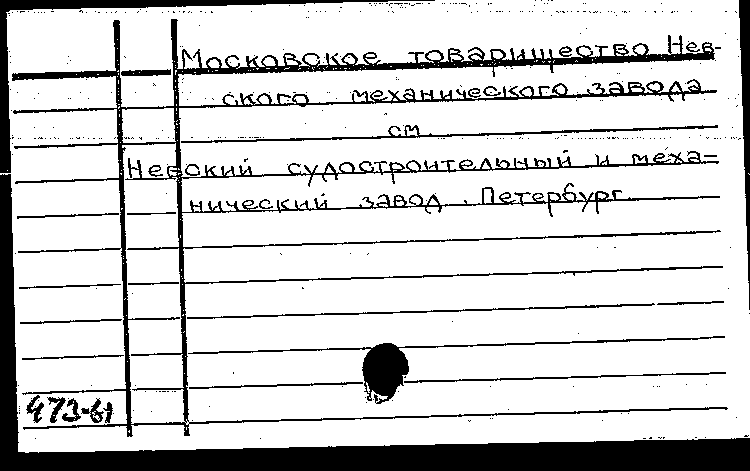 Московское товарищество Нев-
ского механического завода
см.
Невский судостроительный и меха=
нический завод. Петербург.
473-61